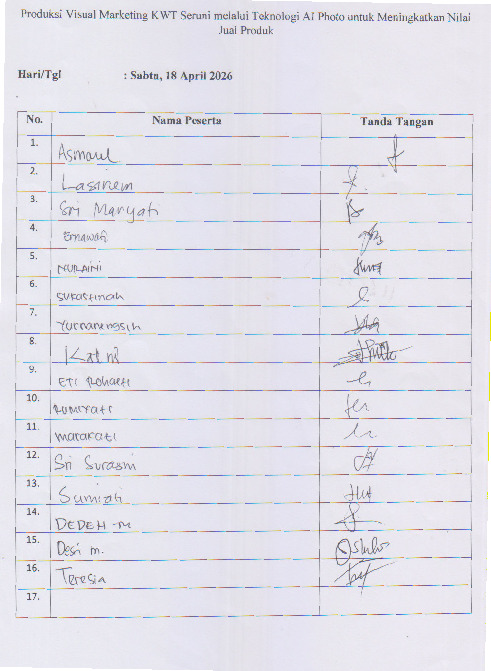 Produksi Visual Marketing KWT Seruni melalui Teknologi AI Photo untuk Meningkatkan Nilai
Jual Produk
Hari/Tgl : Sabtu, 18 April 2026
No. Nama Peserta Tanda Tangan
1. Asmaul
2. Lasinem
3. Sri Maryati
4. Ernawati
5. NURAINI
6. sukastinah
7. Yurnaningsih
8. Katni
9. ETI Rohaeti
10. Rumiyati
11.
12. Sri Surasmi
13. Sumiati
14. DEDEH -M
15. Desi m.
16. Teresia
17.